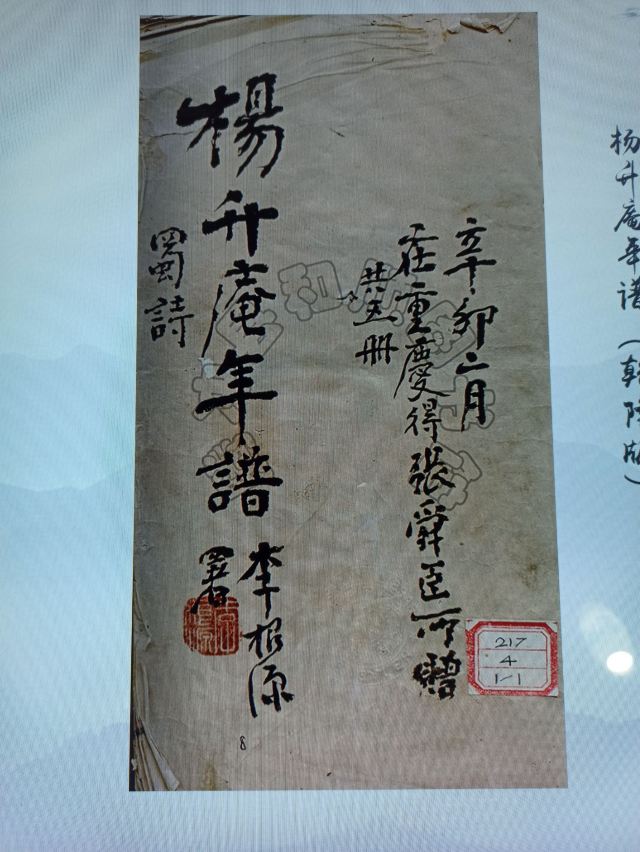 杨升庵年谱
辛卯六月
在重慶得張舜臣所贈
共五册
楊升庵年譜
李根源
署
蜀詩
217
4
1-1
8